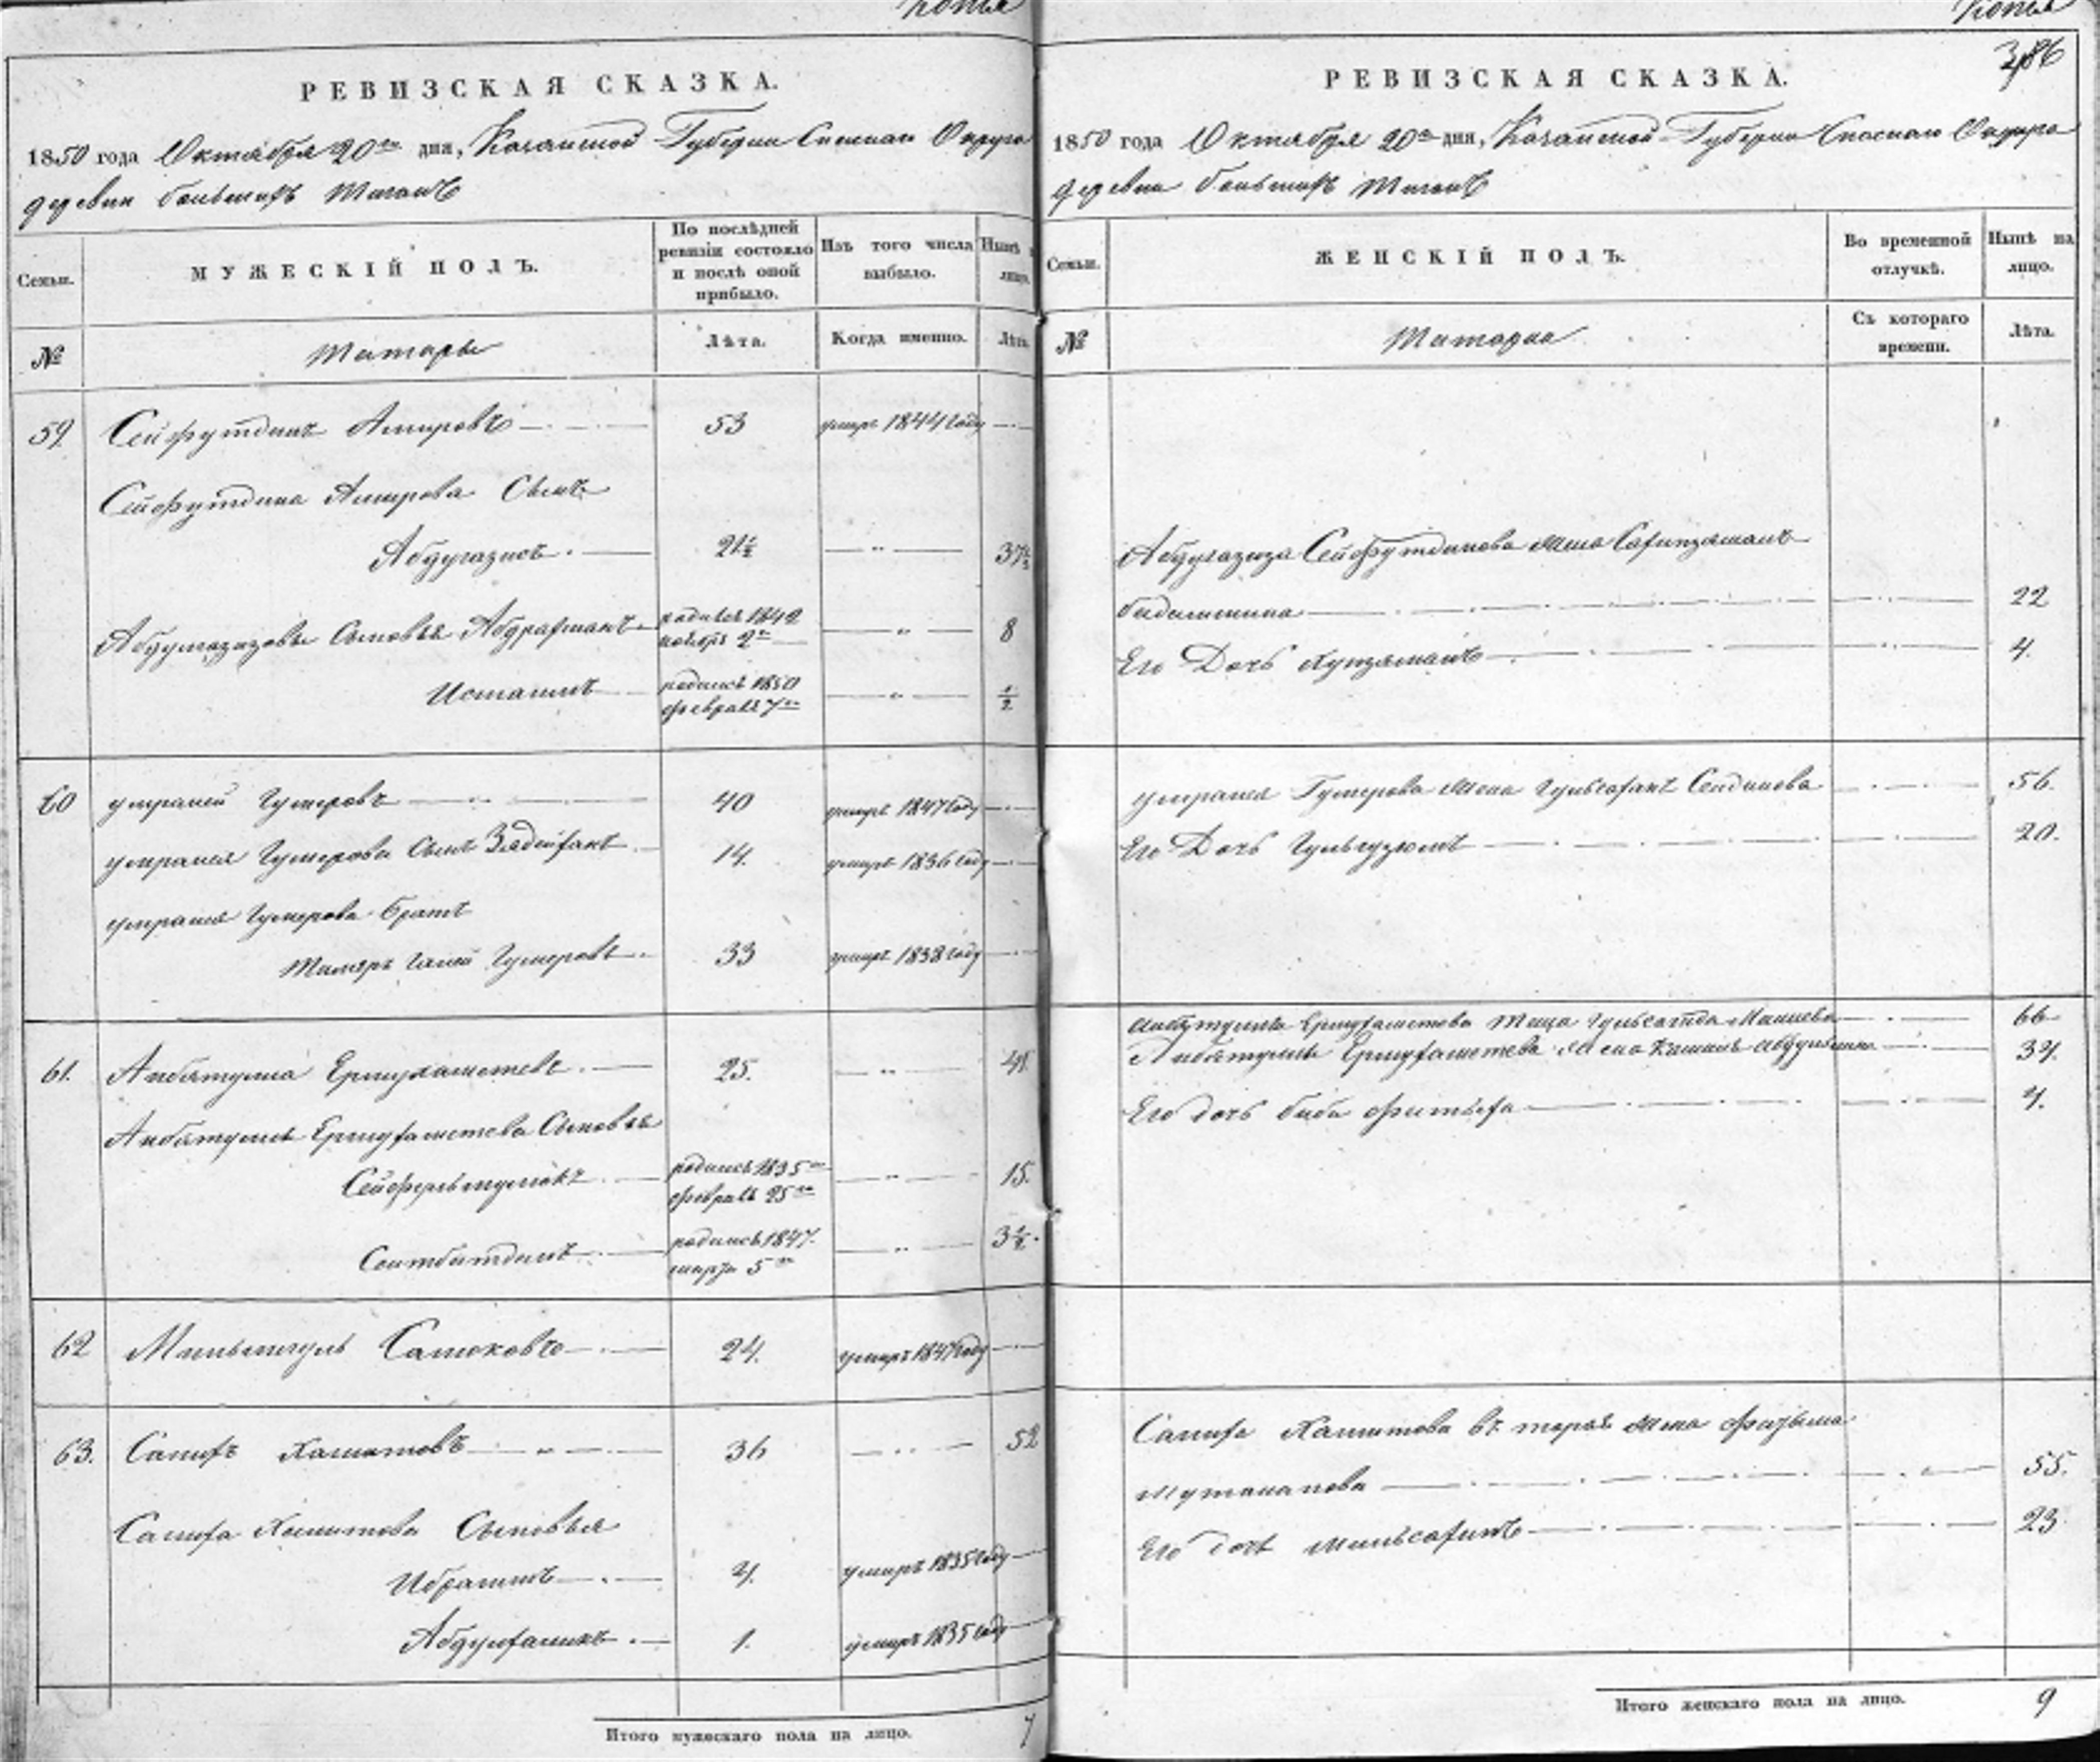 Копия
РЕВИЗСКАЯ СКАЗКА.
1850 года Октября 20го дня, Казанской Губернии Спаскаго Округа
деревни большихъ Тиганъ
Семьи.
МУЖЕСКІЙ ПОЛЪ.
По послѣдней ревизіи состояло и послѣ оной прибыло.
Изъ того числа выбыло.
Нынѣ на лицо.
№
Татары
Лѣта.
Когда именно.
Лѣта.
59 Сейфутдинъ Амировъ 53 умеръ 1844 году
Сейфутдина Амирова Сынъ
Абдулгазисъ 21½ 37½
Абдулгазизовы Сыновья Абдрахманъ родился 1842 ноября 2го 8
Исмаилъ родился 1850 февраля 7го ½
60 Гумеровъ 40 умеръ 1847 году
Гумерова Сынъ 14. умеръ 1836 году
Гумерова братъ
Гумеровъ 33 умеръ 1838 году
61. Аибатулла Ермухаметевъ 25. 41
Аибатуллы Ермухаметева Сыновья
Сейфульмулюкъ родился 1835го февраля 25го 15.
Сеитбатдалъ родился 1847. марта 5го 3½.
62 Миньмигуль Салюковъ 24. умеръ 1847 году
63. Салихъ Хамитовъ 36 52
Салиха Хамитова Сыновья
Ибрагимъ 4. умеръ 1835 году
Абдулхаликъ 1. умеръ 1835 году
Итого мужескаго пола на лицо. 7
Копия
386
РЕВИЗСКАЯ СКАЗКА.
1850 года Октября 20го дня, Казанской Губернии Спаскаго Округа
деревни большихъ Тиганъ
Семьи.
ЖЕНСКІЙ ПОЛЪ.
Во временной отлучкѣ.
Нынѣ на лицо.
№
Татарки
Съ котораго времени.
Лѣта.
Абдулгазиза Сейфутдинова жена
22
Его Дочь 4.
Гумерова жена 56.
Его Дочь 20.
Аибатуллы Ермухаметова 66
Аибатуллы Ермухаметева жена 34.
Его дочь биби 4.
Салиха Хамитова вторая жена
55.
Его дочь 23
Итого женскаго пола на лицо. 9